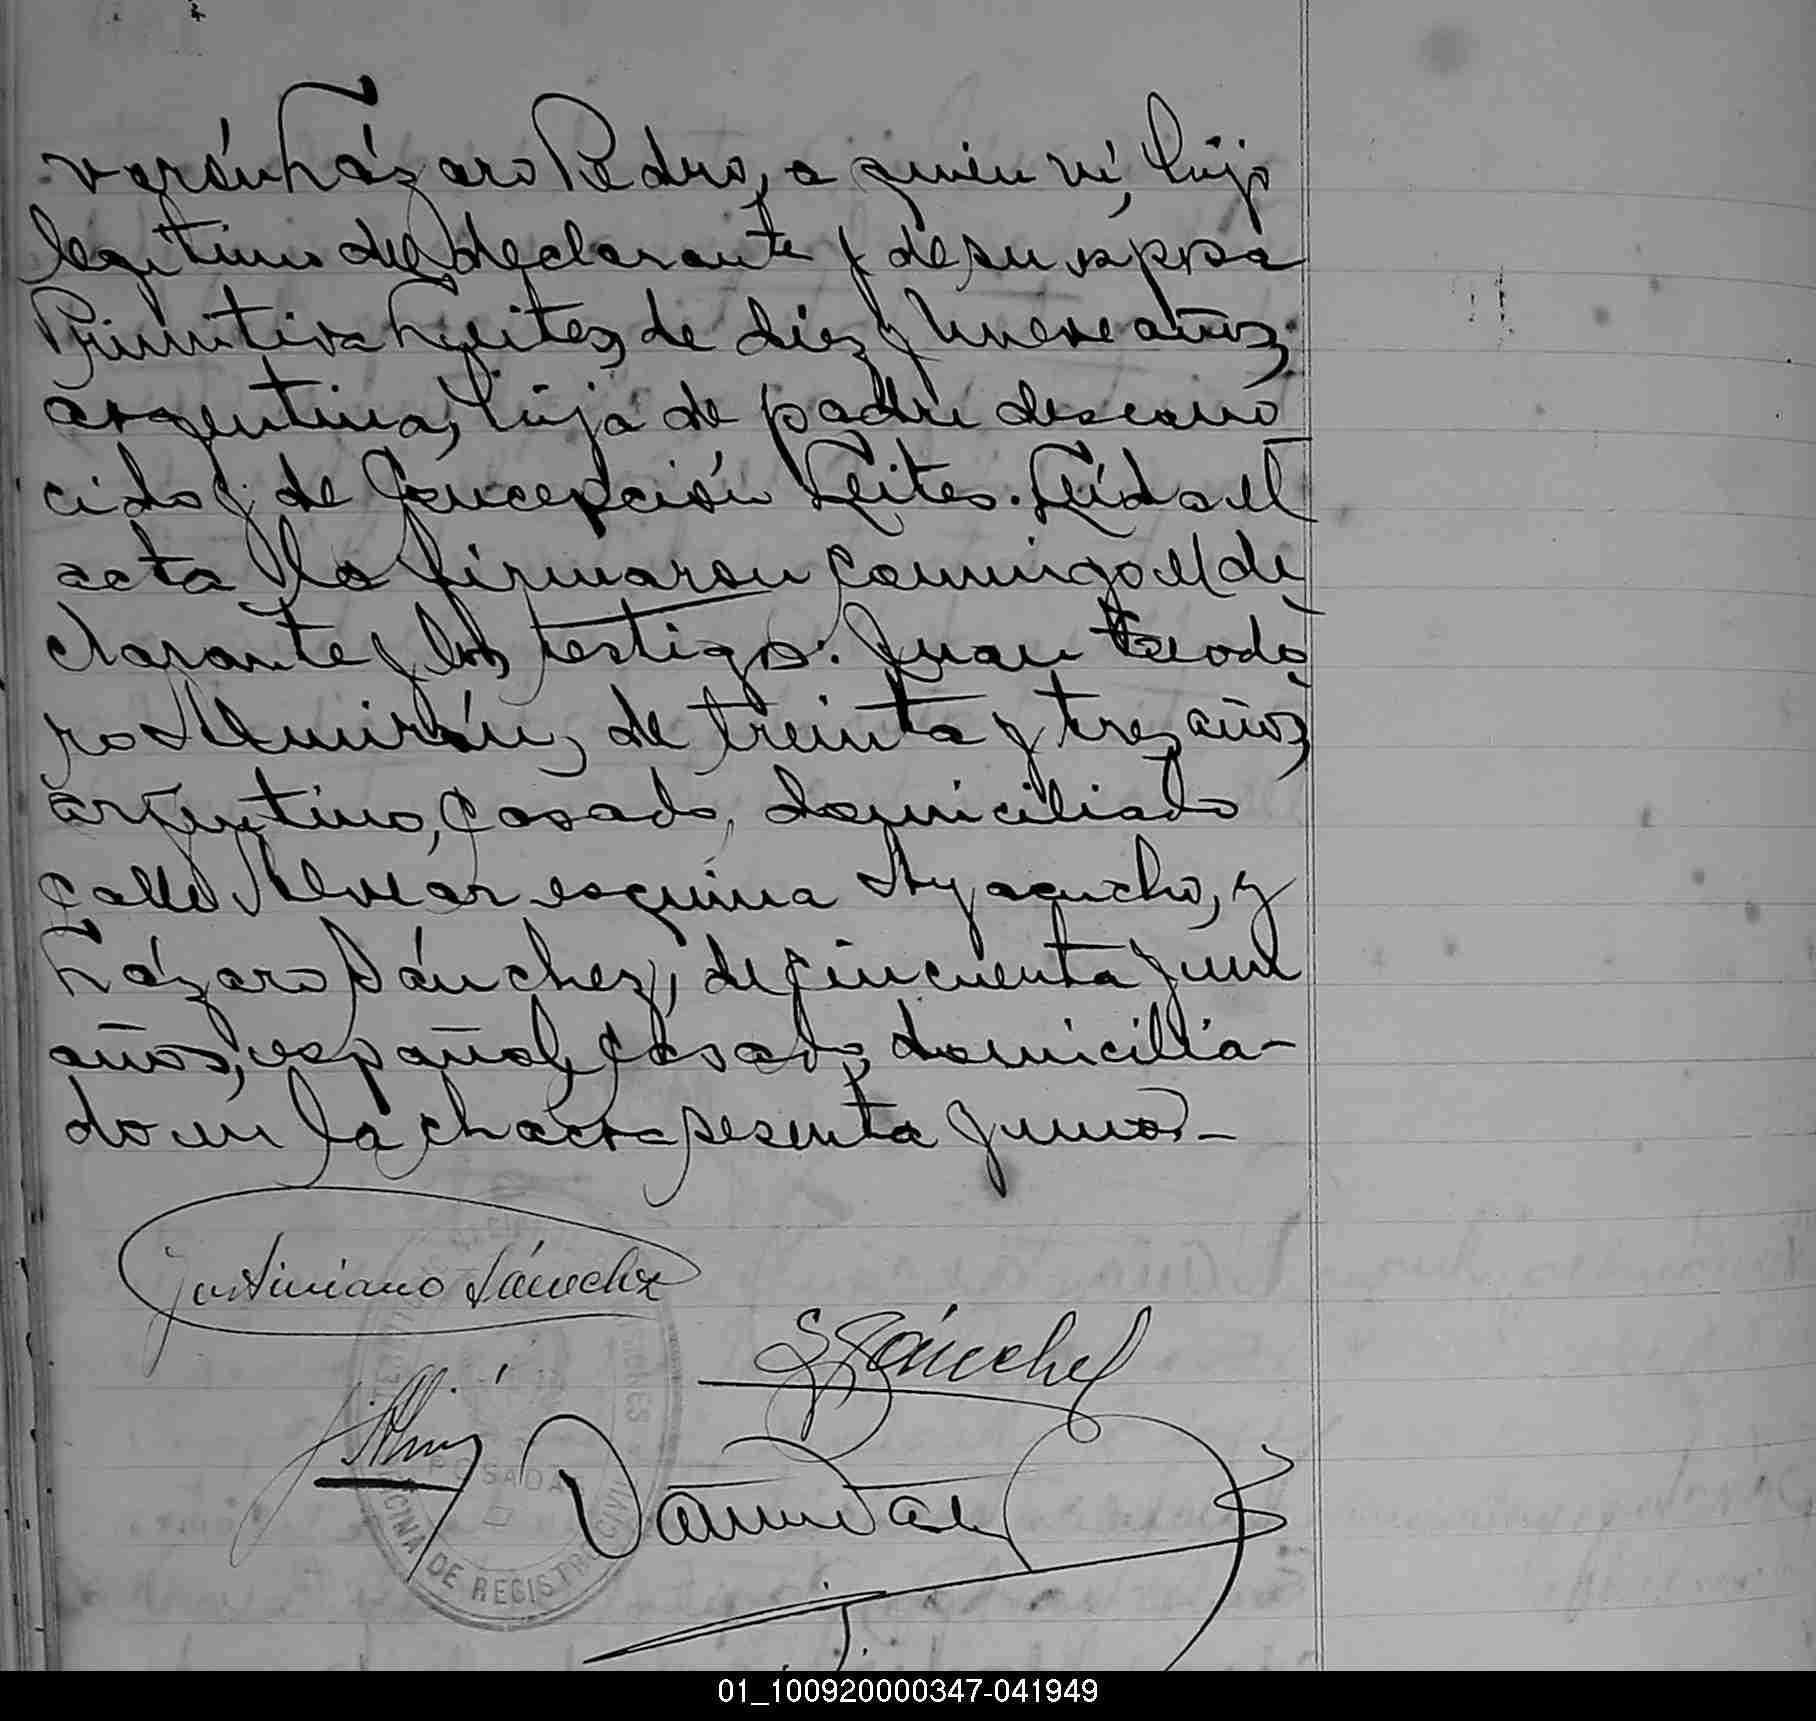 varón Lázaro Pedro, a quien vi, hijo
legítimo del declarante y de su esposa
Primitiva Leites, de diez y nueve años,
argentina, hija de padre descono
cido y de Concepción Leites. Leída el
acta la firmaron conmigo el de
clarante y los testigos: Juan Teodo
ro Almirón, de treinta y tres años,
argentino, casado, domiciliado
calle Alvear esquina Ayacucho, y
Lázaro Sánchez, de cincuenta y un
años, español, casado, domicilia-
do en la chacra sesenta y uno.-
Justiniano Sánchez
L Sánchez
POSADAS
OFICINA DE REGISTRO CIVIL
01_100920000347-041949